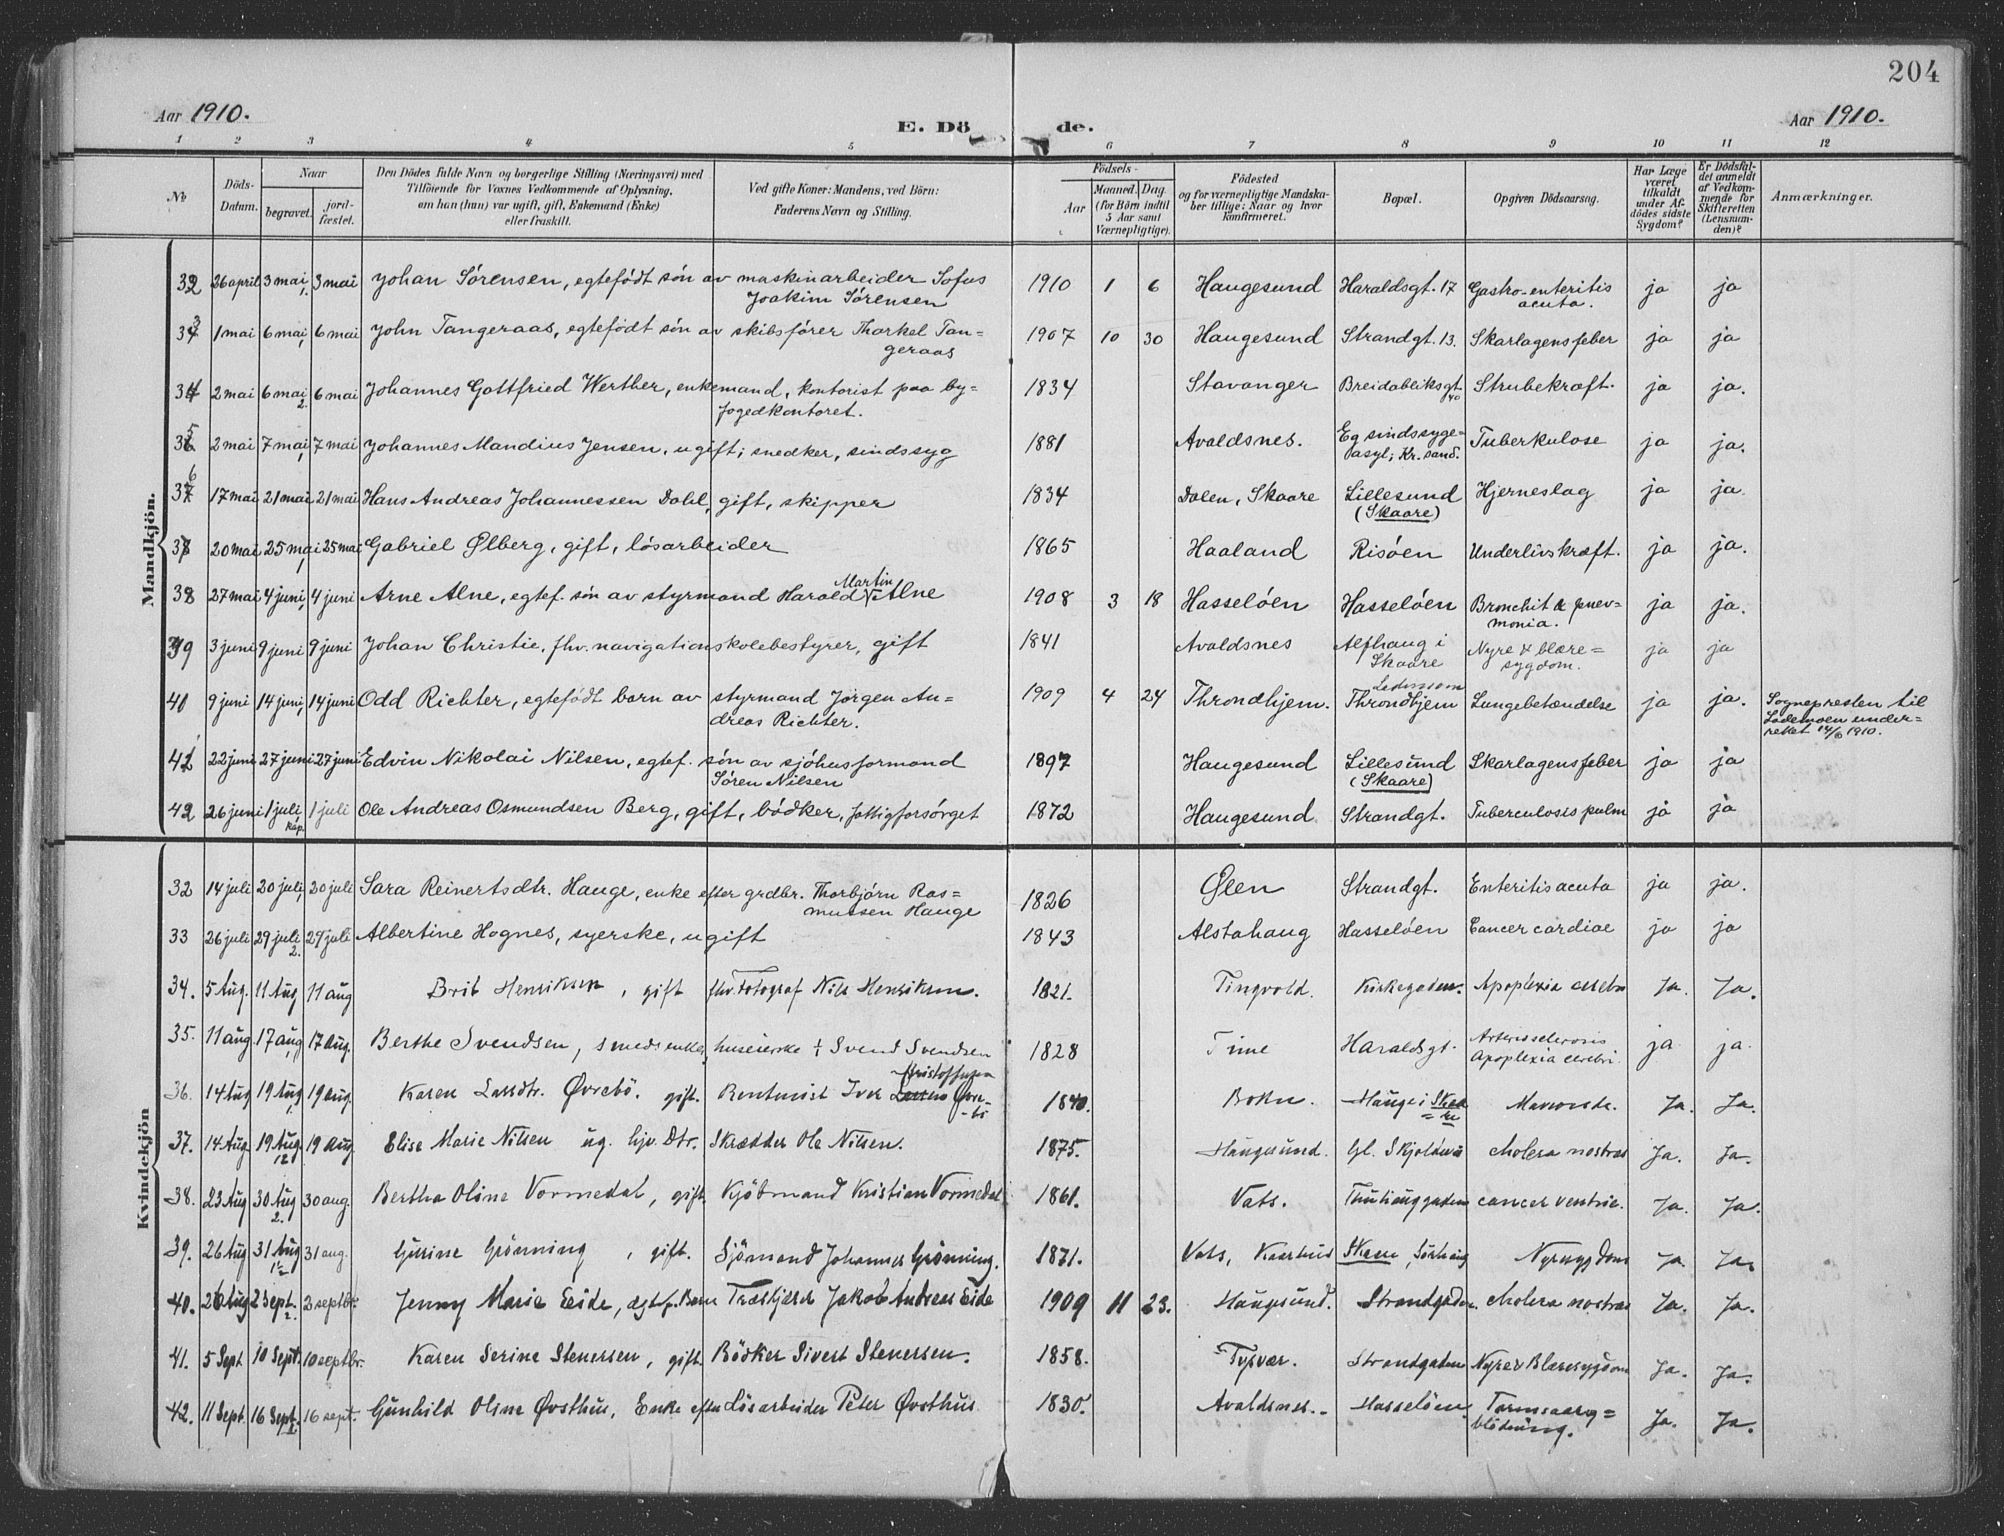 204
Aar 1910.
E. Dö de.
Aar 1910.
1 2 3 4 5 6 7 8 9 10 11 12
№
Döds-Datum.
Naar
begravet.
jord-fæstet.
Den Dödes fulde Navn og borgerlige Stilling (Næringsvei) med
Tilföiende for Voxnes Vedkommende af Oplysning,
om han (hun) var ugift, gift, Enkemand (Enke)
eller fraskilt.
Ved gifte Koner: Mandens, ved Börn:
Faderens Navn og Stilling.
Födsels-
Aar
Maaned. Dag.
(for Börn indtil
5 Aar samt
Værnepligtige).
Födested
og for værnepligtige Mandska-
ber tillige: Naar og hvor
konfirmeret.
Bopæl.
Opgiven Dödsaarsag.
Har Læge
været
tilkaldt
under Af-
dödes sidste
Sygdom?
Er Dödsfal-
det anmeldt
af Vedkom-
mende for
Skifteretten
(Lensman-
den)?
Anmærkninger.
Mandkjön.
32 26 april 3 mai 3 mai Johan Sørensen, egtefödt sön av maskinarbeider Sofus 1910 1 6 Haugesund Haraldsgt. 17 Gastro-enteritis ja ja
Joakim Sørensen acuta.
33 1 mai 6 mai 6 mai John Tangeraas, egtefödt sön av skibsförer Thorkel Tan= 1907 10 30 Haugesund Strandgt. 13. Skarlagensfeber ja ja
geraas
34 2 mai 6 mai 6 mai Johannes Gottfried Werther, enkemand, kontorist paa by= 1834 Stavanger Breidabliksgt. Strubekræft. ja ja.
2. fogedkontoret. 40
35 2 mai 7 mai 7 mai Johannes Mandius Jensen, ugift; snedker, sindssyg 1881 Avaldsnes. Eg sindssyge= Tuberkulose ja ja.
asyl; Kr. sand.
36 17 mai 21 mai 21 mai Hans Andreas Johannessen Dahl, gift, skipper 1834 Dalen, Skaare Lillesund Hjerneslag ja ja.
(Skaare)
37 20 mai 25 mai 25 mai Gabriel Ølberg, gift, lösarbeider 1865 Haaland Risöen Underlivskræft. ja ja.
38 27 mai 4 juni 4 juni Arne Alne, egtef. sön av styrmand Harald Martin Alne 1908 3 18 Hasselöen Hasselöen Bronchit & pnev= ja ja.
monia.
39 3 juni 9 juni 9 juni Johan Christie, fhv. navigationskolebestyrer, gift 1841 Avaldsnes Alfhaug i Nyre & blære= ja ja
Skaare sygdom.
40 9 juni 14 juni 14 juni Odd Richter, egtefödt barn av styrmand Jørgen An= 1909 4 24 Throndhjem. Throndhjem Lungebetændelse ja ja. Sognepresten til
dreas Richter. Lademoen under=
rettet 14/6 1910.
41 22 juni 27 juni 27 juni Edvin Nikolai Nilsen, egtef. sön av sjöhusformand 1897 Haugesund Lillesund Skarlagensfeber ja ja
Sören Nilsen (Skaare)
42 26 juni 1 juli 1 juli Ole Andreas Osmundsen Berg, gift, bödker, fattigforsörget 1872 Haugesund Strandgt. Tuberculosis pulm ja ja
kap.
Kvindekjön
32 14 juli 20 juli 20 juli Sara Reinertsdtr. Hauge, enke efter grdbr. Thorbjörn Ras= 1826 Ølen Strandgt. Enteritis acuta ja ja.
mussen Hauge
33 26 juli 29 juli 29 juli Albertine Hognes, syerske, ugift 1843 Alstahaug Hasselöen Cancer cardiae ja ja
2.
34. 5 Aug. 11 Aug 11 aug Brit Henriksen, gift fhv. Fotograf Nils Henriksen. 1821. Tingvold. Kirkegaden. Apoplexia cerebri Ja. Ja.
35. 11 aug. 17 aug 17 aug. Berthe Svendsen, smedsenke, huseierske ÷ Svend Svendsen 1828 Time Haraldsgt. Arteriosclerosis ja ja.
Apoplexia cerebri.
36. 14 Aug 19 Aug 19 aug. Karen Larsdtr. Øvrebö. gift. Rentenist Iver Larsen Kristoffersen Øvre- 1840. Bokn. Hauge i Skaa Ja. Ja.
-bö =re
37. 14 Aug 19 Aug. 19 aug Elise Marie Nilsen ug. hjv. Dtr. Skrædder Ole Nilsen. 1875. Haugesund. Gl. Skjoldevei cholera nostras Ja. Ja.
12
38. 23 Aug 30 Aug 30 aug. Bertha Oline Vormedal, gift. Kjöbmand Kristian Vormedal 1861. Vats. Thuhauggaden cancer ventric. Ja. Ja.
2.
39. 26 Aug 31 Aug 31 aug. Gurine Grönning, gift. Sjömand Johannes Grönning. 1871. Vats, Kaarhus Skaare, Sörhaug Nyresygdom Ja Ja.
40. 26 Aug 2 Sept. 2 septbr. Jenny Marie Eide, ægtef. Barn Træskjærer Jakob Andreas Eide 1909 11 23. Haugesund. Strandgaden. cholera nostras Ja. Ja.
2
41. 5 Sept 10 Sept. 10 septbr. Karen Serine Stenersen, gift. Bödker Sivert Stenersen. 1858. Tysvær. Strandgaden Nyre & Blæresygdom Ja. Ja.
42. 11 Sept. 16 Sept. 16 sept. Gunhild Oline Øvsthus, Enke efter Lösarbeider Peter Øvsthus 1830. Avaldsnes. Hasselöen. Tarmsaar= Ja. Ja.
blödning.